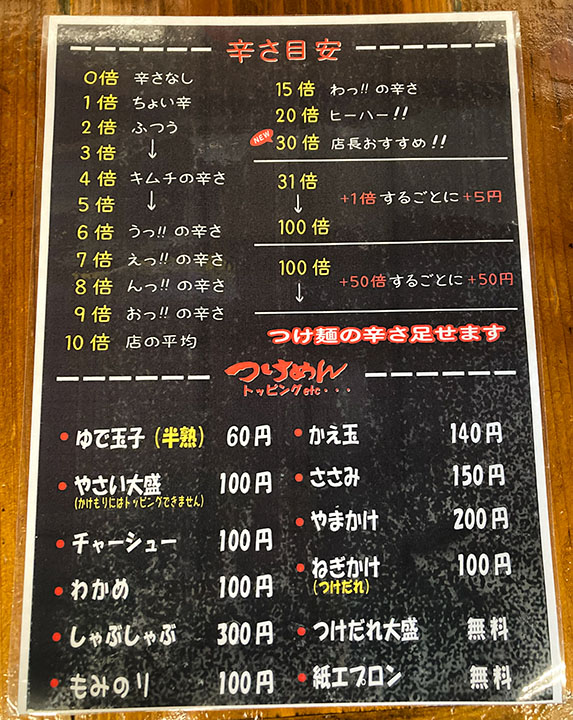 辛さ目安
0倍 辛さなし
1倍 ちょい辛
2倍 ふつう
3倍 ↓
4倍 キムチの辛さ
5倍 ↓
6倍 うっ!! の辛さ
7倍 えっ!! の辛さ
8倍 んっ!! の辛さ
9倍 おっ!! の辛さ
10倍 店の平均
15倍 わっ!! の辛さ
20倍 ヒーハー!!
NEW 30倍 店長おすすめ!!
31倍
↓ +1倍するごとに+5円
100倍
100倍
↓ +50倍するごとに+50円
つけ麺の辛さ足せます
つけめん
トッピングetc・・・
・ゆで玉子(半熟) 60円
・やさい大盛 100円
(かけもりにはトッピングできません)
・チャーシュー 100円
・わかめ 100円
・しゃぶしゃぶ 300円
・もみのり 100円
・かえ玉 140円
・ささみ 150円
・やまかけ 200円
・ねぎかけ 100円
(つけだれ)
・つけだれ大盛 無料
・紙エプロン 無料